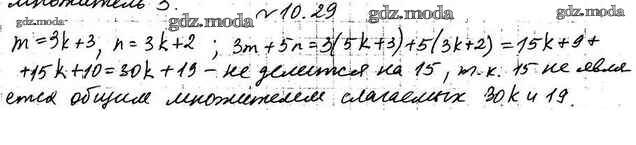 множитель 3.
№10.29
m = 9k+3, n = 3k+2 ; 3m+5n = 3(5k+3)+5(3k+2) = 15k+9+
+15k+10 = 30k+19 – не делится на 15, т.к. 15 не явля
ется общим множителем слагаемых 30k и 19.
gdz.moda
gdz.moda
gdz.moda
gdz.moda
gdz.moda